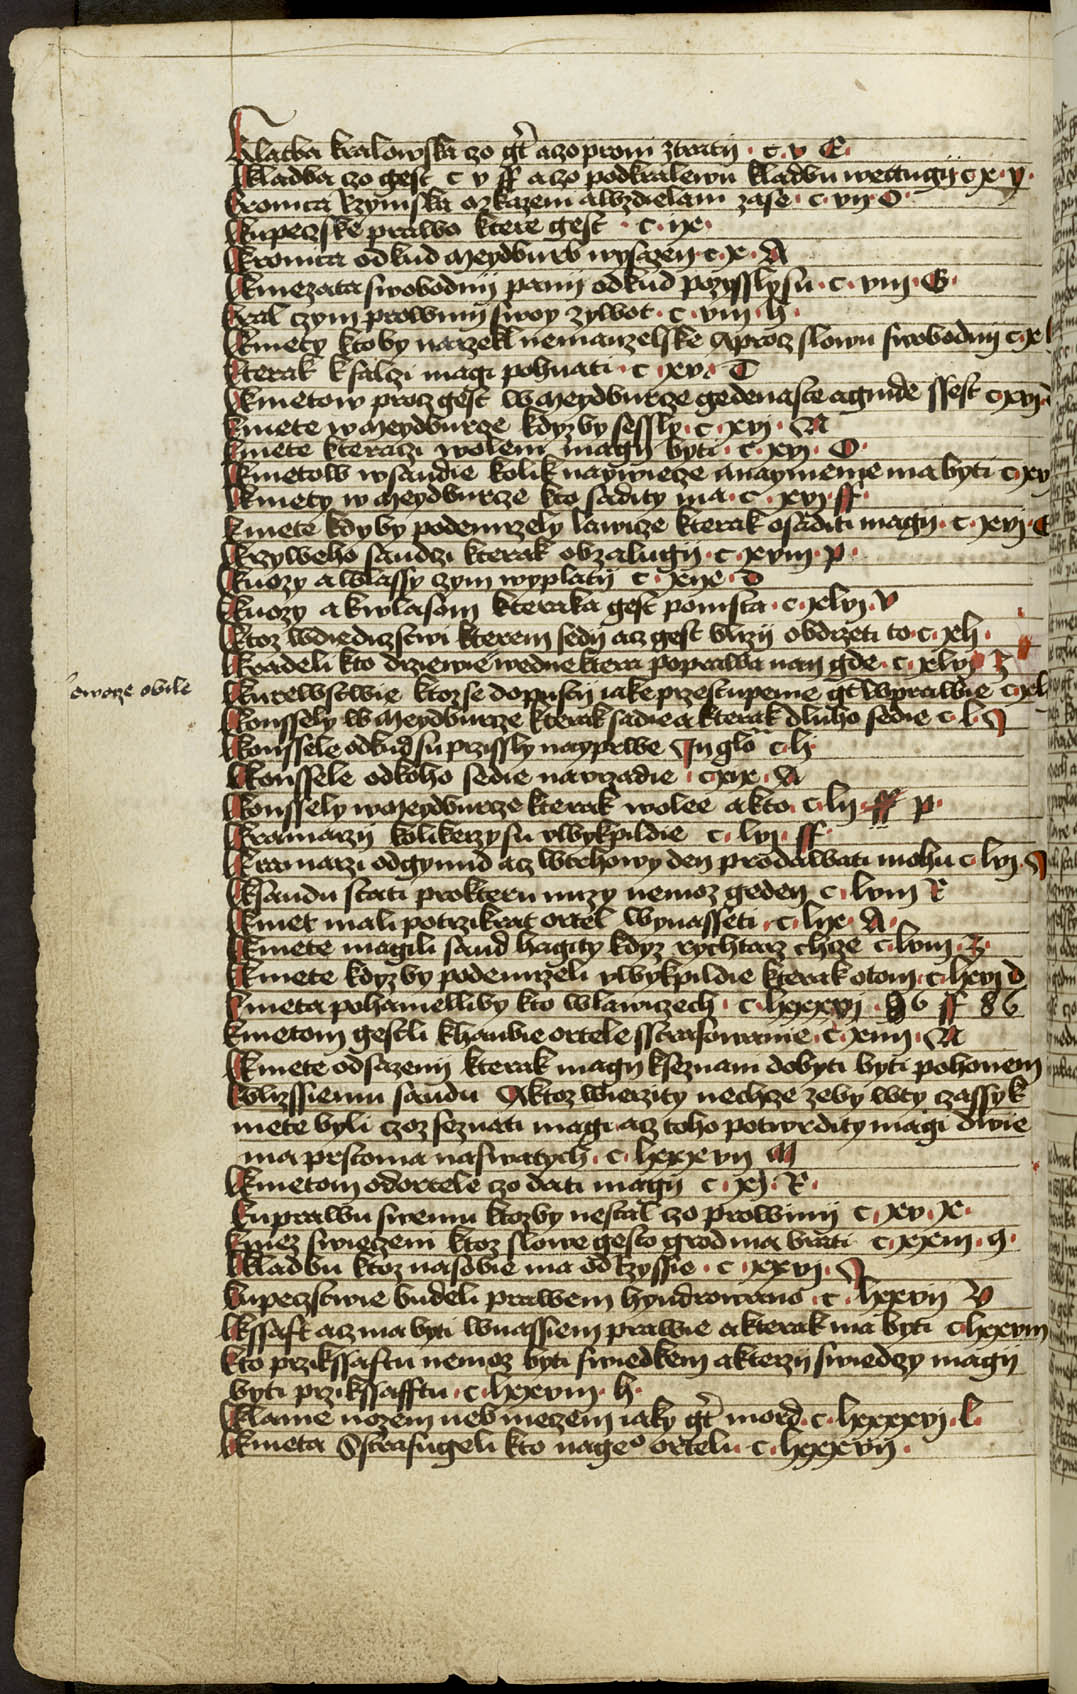 Klatba kralowska czo gt aczo prom ztratij · c · v E ·
Kladba czo gest c v ff aczo podkralewu kladbu wettugij c x · y ·
Kronica rzymska o zkazeni a wzdielani zase · c · vij O ·
Kupeczske prawo ktere gest · c · ix ·
Kronica odkud Meydburk wysazen c · x · A
Kniezata swobodnij panij odkud przyssly su · c · viij · G ·
Kral czym prowinij swoy zywot · c · viij · h ·
Kmety ktoby narzekl nemanzelske A procz slowu swobodnij c x
Kterak k salczi magi pohnati · c · xv · T
Kmetow procz gest w Meydburcze gedenaste a ginde ssest c xvj
Kmete w Meydburcze kdyz by sessly · c · xvj · N
Kmete kteraczi wolem magij byti · c · xvj · O ·
Kmetow w saudie kolik naywiecze a naymene ma byti c xv
Kmety w Meydburcze kto sadity ma · c · xvj · ff ·
Kmete kdy by podemrzely lawicze kterak osaditi magij · c · xvj · E
Krzyweho saudczi kterak obzalugij · c xviij · p ·
Kuozy a wlassy czym wyplatij c · xix · d
Kuozy a k wlasom kteraka gest pomsta · c · xlvj · V
Ktoz w diediczstwi kterem sedij acz gest blizij obdrzeti to · c · xli ·
Kradeli kto drziewie we dne ktera poprawa nan gde · c · xlvj Z
ewoze obile
Kurewstwie ktoz se dopustij iake przestupenie gt w prawie c · xl
Konssely w Meydburcze kterak sadie a kterak dluho sedie c · l · J
Konssele odkud su przyssly nayprwe In glo c · li ·
Konssele odkoho sedie na urzadie · c xix · N
Konssely w Meydburcze kterak wolee a kto · c · lij · ff p ·
Kramarzij kolikerzy su v wykpildie c · lvj · ff ·
Kramarzi od gynud acz w trhowy den prodawati mohu c · lvj · J
K saudu stati pro kteru nuzy nemoz geden c · lviij R
Kmet mali potrzikrat ortel wynasseti · c · lix · A ·
Kmete magili saud hagity kdyz rychtarz chcze c · lviij · Z ·
Kmete kdyz by podemrzeli v wykpildie kterak o tom · c · lxvj d
Kmeta pohanielliby kto w lawiczech · c · lxxxvj · 86 ff 86
Kmetom gestli k hanbie ortele sstrafowanie · c · xiiij · N
Kmete od sazenij kterak magij k seznani dobyti byti pohonem
k blizssiemu saudu A ktoz wierzity nechcze zeby w ty czassy k
mete byli czoz seznati magi acz toho potwrdity magi dwie
ma prstoma na swatych · c · lxxxvij M
Kmetom od ortele czo dati magij c · xj · R ·
K u prawu swemu ktozby nestal czo prowinij c · xv · x ·
Kniez swieczeni ktoz slowe gesto grod ma brati c · xxiij · g ·
Kladbu ktoz na sobie ma od rzyssie · c · xxvj · J
Kupeczstwie budeli prawem hyndrowano · c · lxxvij V
Kssaft acz ma byti w nassiem prawie a kterak ma byti c lxxviij
Kto przi kssaftu nemoz byti swiedkem a kterzij swiedczy magij
byti przi kssafftu · c · lxxviij · h ·
Klanie nozem neb meczem iaky gt mord · c · lxxxxvj · l ·
Kmeta Sstrafugeli kto na geo ortelu · c · lxxxvij ·